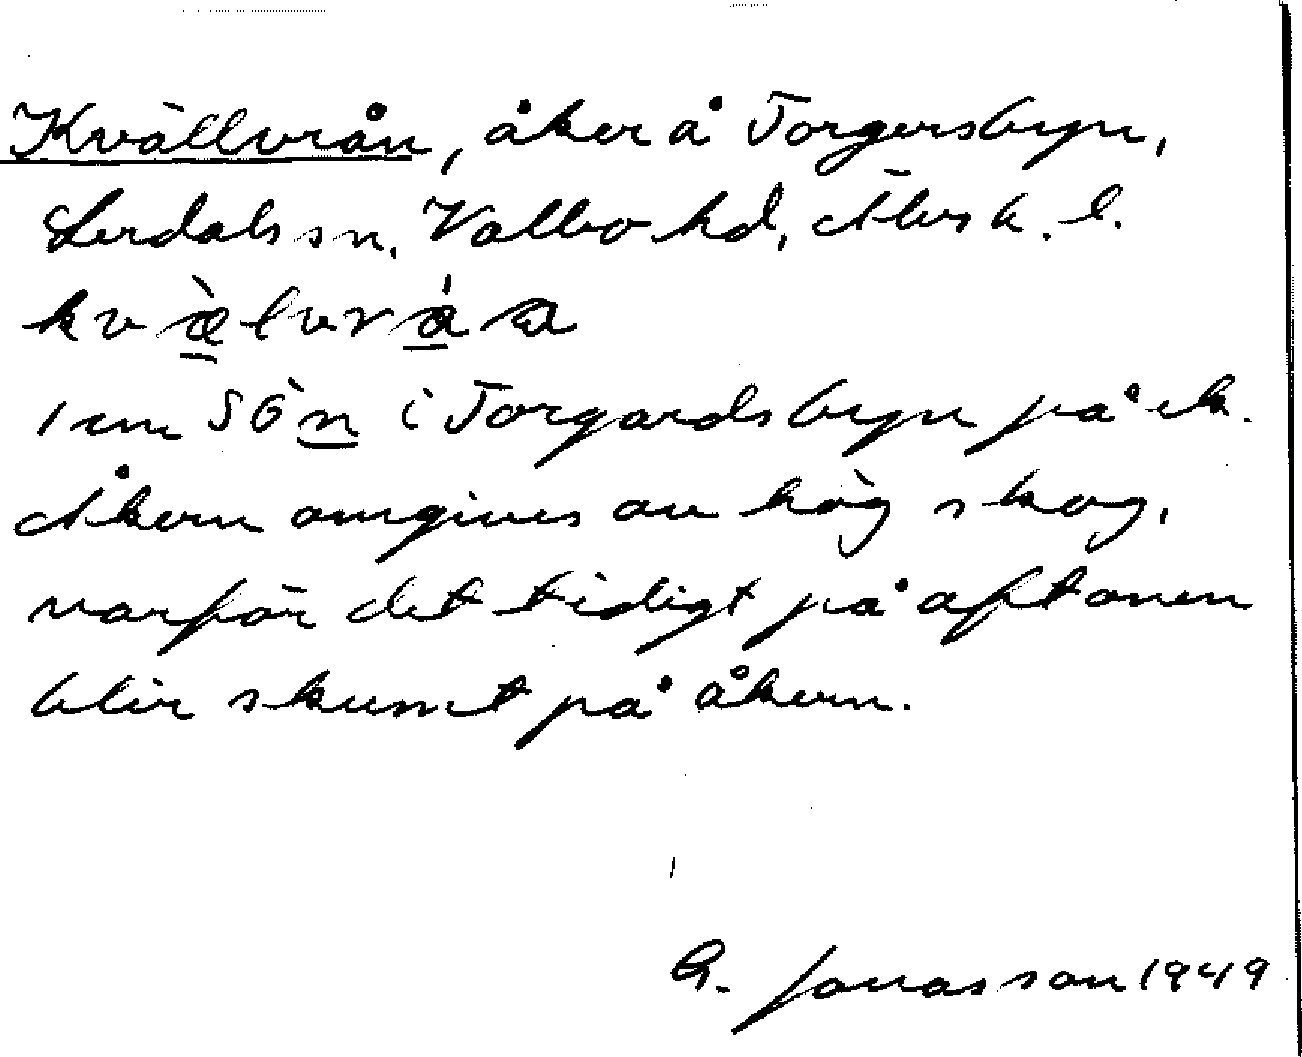 Kvällvrån, åker å Torgersbyn,
Lerdals sn, Valbo hd, Älvsb. l.
1 cm SÖn i Torgardsbyn på ek.
Åkern omgives av hög skog,
varför det tidigt på aftonen
blir skumt på åkern.
G. Jonasson 1949